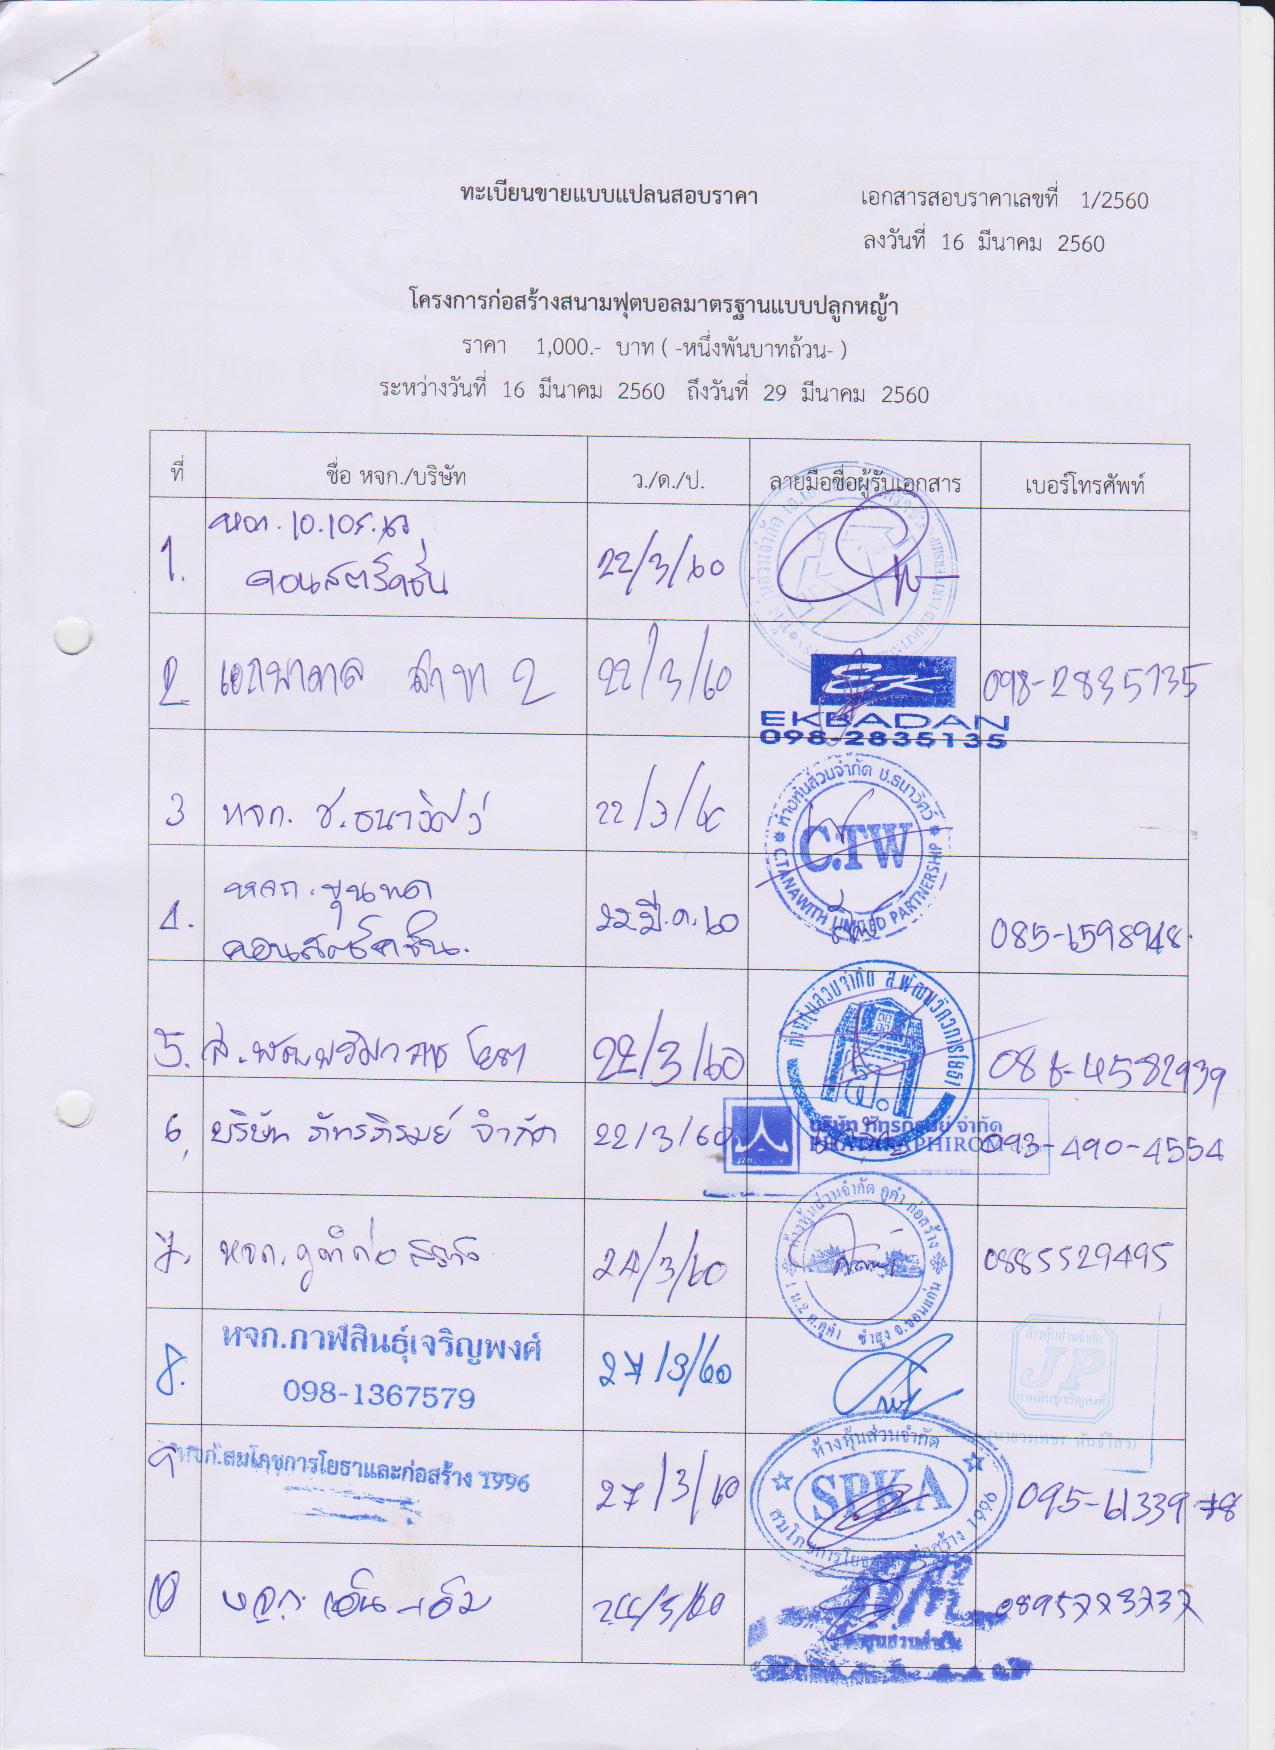 ทะเบียนขายแบบแปลนสอบราคา เอกสารสอบราคาเลขที่ 1/2560
ลงวันที่ 16 มีนาคม 2560
โครงการก่อสร้างสนามฟุตบอลมาตรฐานแบบปลูกหญ้า
ราคา 1,000.- บาท ( -หนึ่งพันบาทถ้วน- )
ระหว่างวันที่ 16 มีนาคม 2560 ถึงวันที่ 29 มีนาคม 2560
ที่ ชื่อ หจก./บริษัท ว./ด./ป. ลายมือชื่อผู้รับเอกสาร เบอร์โทรศัพท์
หจก.
1. คอนสตรัคชั่น 22/3/60
2 สาขา 2 22/3/60 098-2835135
EKBADAN
098-2835135
3 หจก. ช.ธนาวิศว์ 22/3/60
ห้างหุ้นส่วนจำกัด ช.ธนาวิศว์
C.TW
C.TANAWITH LIMITED PARTNERSHIP
หจก.ขุนทด
4. คอนสตรัคชั่น. 22 มี.ค. 60 085-1598948
5. 22/3/60
ห้างหุ้นส่วนจำกัด
6, บริษัท ภัทรภิรมย์ จำกัด 22/3/60 093-490-4554
บริษัท ภัทรภิรมย์ จำกัด
7. หจก.คูคำก่อสร้าง 24/3/60 0885529495
ห้างหุ้นส่วนจำกัด คูคำ ก่อสร้าง
1 ม.2 ต.คูคำ ซำสูง จ.ขอนแก่น
หจก.กาฬสินธุ์เจริญพงศ์
8. 098-1367579 27/3/60
ห้างหุ้นส่วนจำกัด
JP
กาฬสินธุ์เจริญพงศ์
9 หจก.สมโภชการโยธาและก่อสร้าง 1996 27/3/60
ห้างหุ้นส่วนจำกัด
SPKA
สมโภชการโยธาและก่อสร้าง 1996
10 หจก. เอ็น-เอ็ม